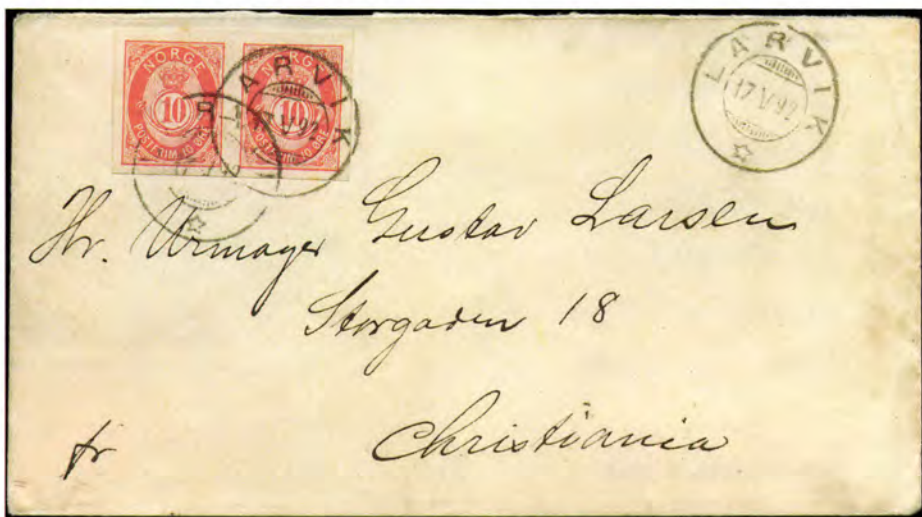 NORGE
10
POSTFRIM 10 ØRE
NORGE
10
POSTFRIM 10 ØRE
LARVIK
17 V 92
LARVIK
17 V 92
Hr. Urmager Gustav Larsen
Storgaden 18
Christiania
fr